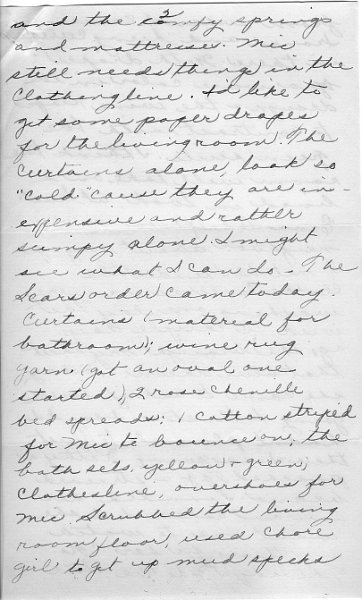 and the 2 comfy springs
and mattresses. Mic
still needs things in the
clothingline. I'd like to
get some paper drapes
for the livingroom. The
curtains alone, look so
"cold" 'cause they are in-
expensive and rather
scimpy alone. I might
see what I can do - The
Sears order came today.
Curtains (material for
bathroom; wine rug
yarn (got an oval one
started), 2 rose chenille
bed spreads; 1 cotton striped
for Mic to bounce on; the
bath sets, yellow & green;
clothesline, overshoes for
Mic. Scrubbed the living
room floor, used chore
girl to get up mud specks